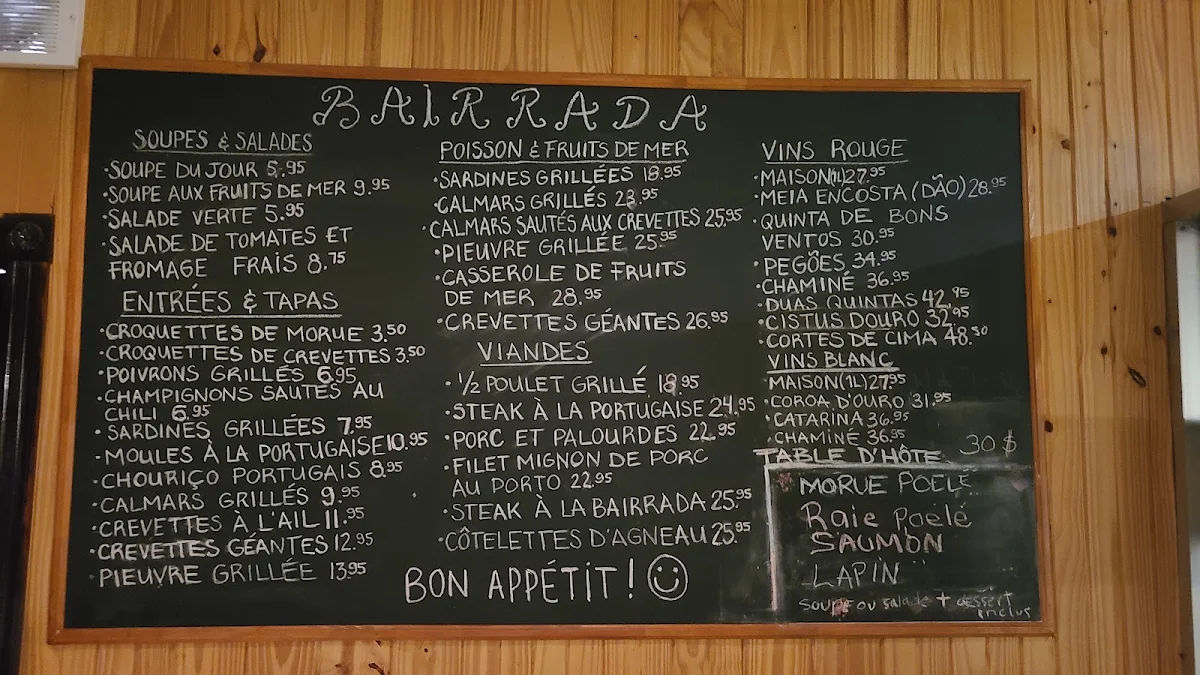 BAIRRADA
SOUPES & SALADES
·SOUPE DU JOUR 5.95
·SOUPE AUX FRUITS DE MER 9.95
·SALADE VERTE 5.95
·SALADE DE TOMATES ET
FROMAGE FRAIS 8.75
ENTRÉES & TAPAS
·CROQUETTES DE MORUE 3.50
·CROQUETTES DE CREVETTES 3.50
·POIVRONS GRILLÉS 6.95
·CHAMPIGNONS SAUTÉS AU
CHILI 6.95
·SARDINES GRILLÉES 7.95
·MOULES À LA PORTUGAISE 10.95
·CHOURIÇO PORTUGAIS 8.95
·CALMARS GRILLÉS 9.95
·CREVETTES À L'AIL 11.95
·CREVETTES GÉANTES 12.95
·PIEUVRE GRILLÉE 13.95
POISSON & FRUITS DE MER
·SARDINES GRILLÉES 18.95
·CALMARS GRILLÉS 23.95
·CALMARS SAUTÉS AUX CREVETTES 25.95
·PIEUVRE GRILLÉE 25.95
·CASSEROLE DE FRUITS
DE MER 28.95
·CREVETTES GÉANTES 26.95
VIANDES
·1/2 POULET GRILLÉ 18.95
·STEAK À LA PORTUGAISE 24.95
·PORC ET PALOURDES 22.95
·FILET MIGNON DE PORC
AU PORTO 22.95
·STEAK À LA BAIRRADA 25.95
·CÔTELETTES D'AGNEAU 25.95
BON APPÉTIT!
VINS ROUGE
·MAISON(1L) 27.95
·MEIA ENCOSTA (DÃO) 28.95
·QUINTA DE BONS
VENTOS 30.95
·PEGÕES 34.95
·CHAMINÉ 36.95
·DUAS QUINTAS 42.95
·CISTUS DOURO 32.95
·CORTES DE CIMA 48.50
VINS BLANC
·MAISON(1L) 27.95
·COROA D'OURO 31.95
·CATARINA 36.95
·CHAMINÉ 36.95
TABLE D'HÔTE 30 $
MORUE POÊLÉ
Raie Poêlé
SAUMON
LAPIN
soupe ou salade + dessert
inclus